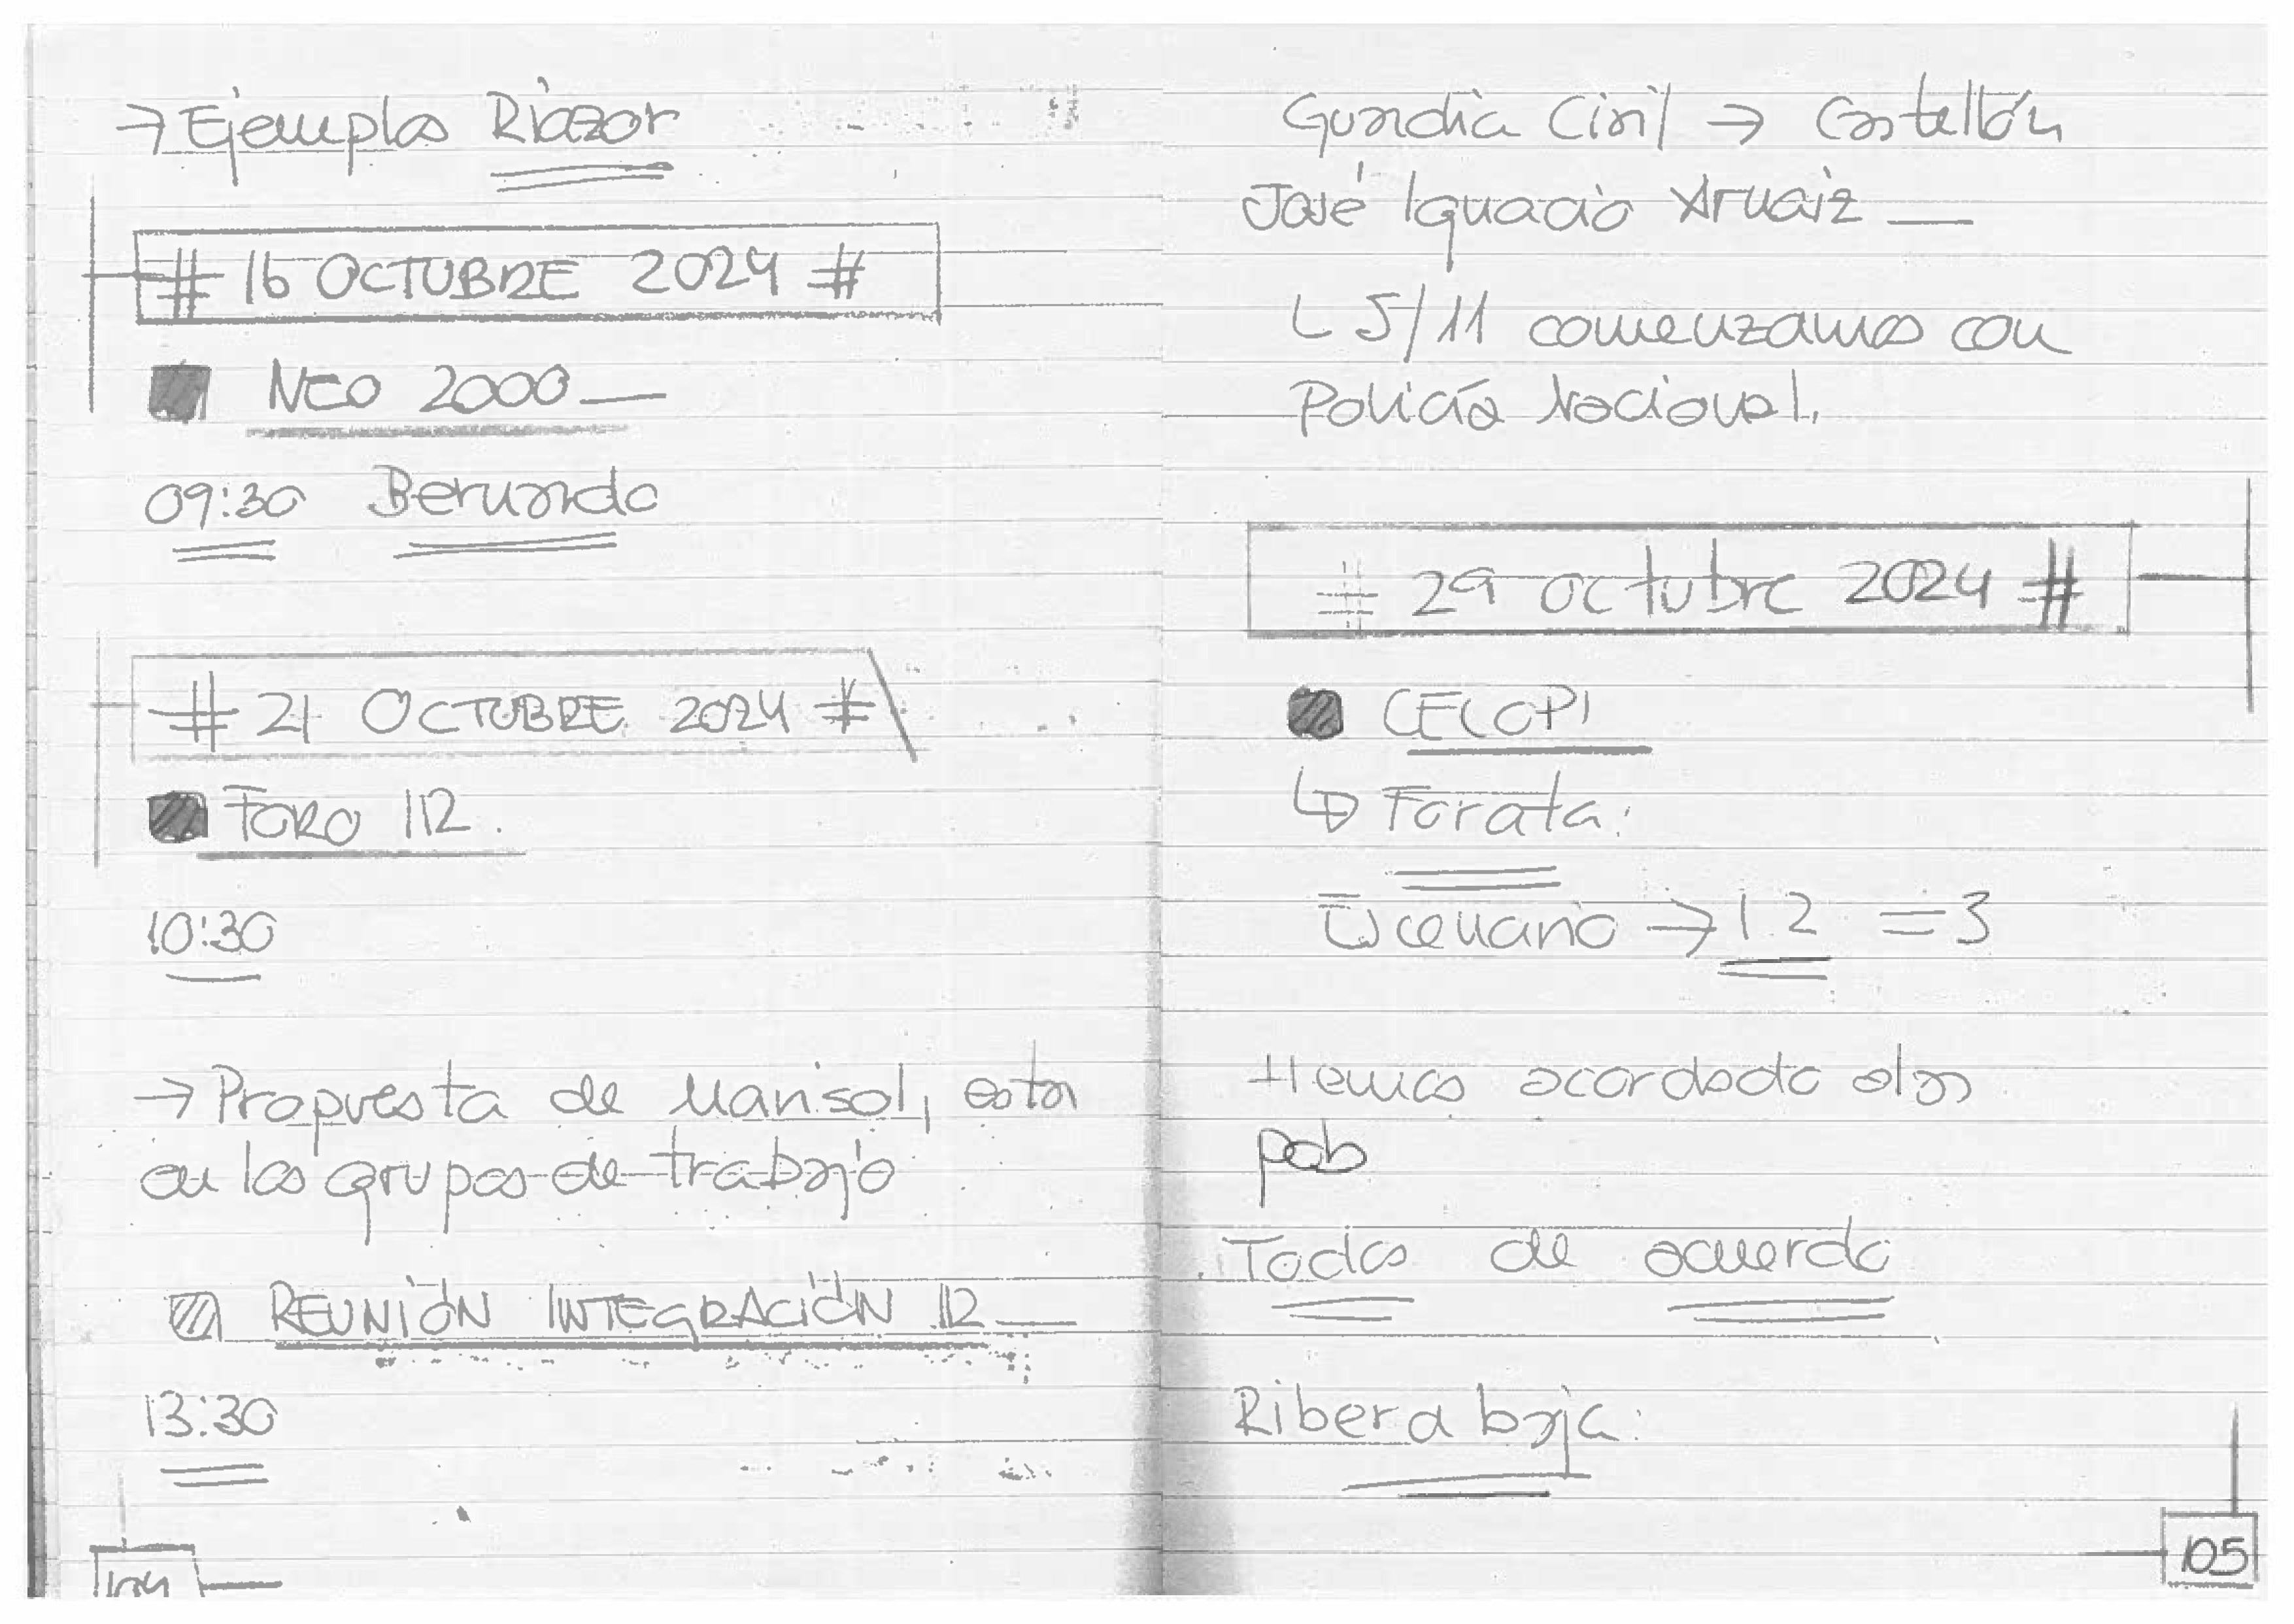 → Ejemplos Riazor
# 16 OCTUBRE 2024 #
NEO 2000
09:30 Bernardo
# 21 OCTUBRE 2024 #
FORO 112.
10:30
→ Propuesta de Marisol, estar
en los grupos de trabajo
REUNIÓN INTEGRACIÓN 112
13:30
104
Guardia Civil → Castellón
José Ignacio Arnaiz
L 5/11 comenzamos con
Policía Nacional.
# 29 octubre 2024 #
CECOPI
↳ Forata:
Escenario → 1.2 = 3
Hemos acordado
Todos de acuerdo
Ribera baja:
105